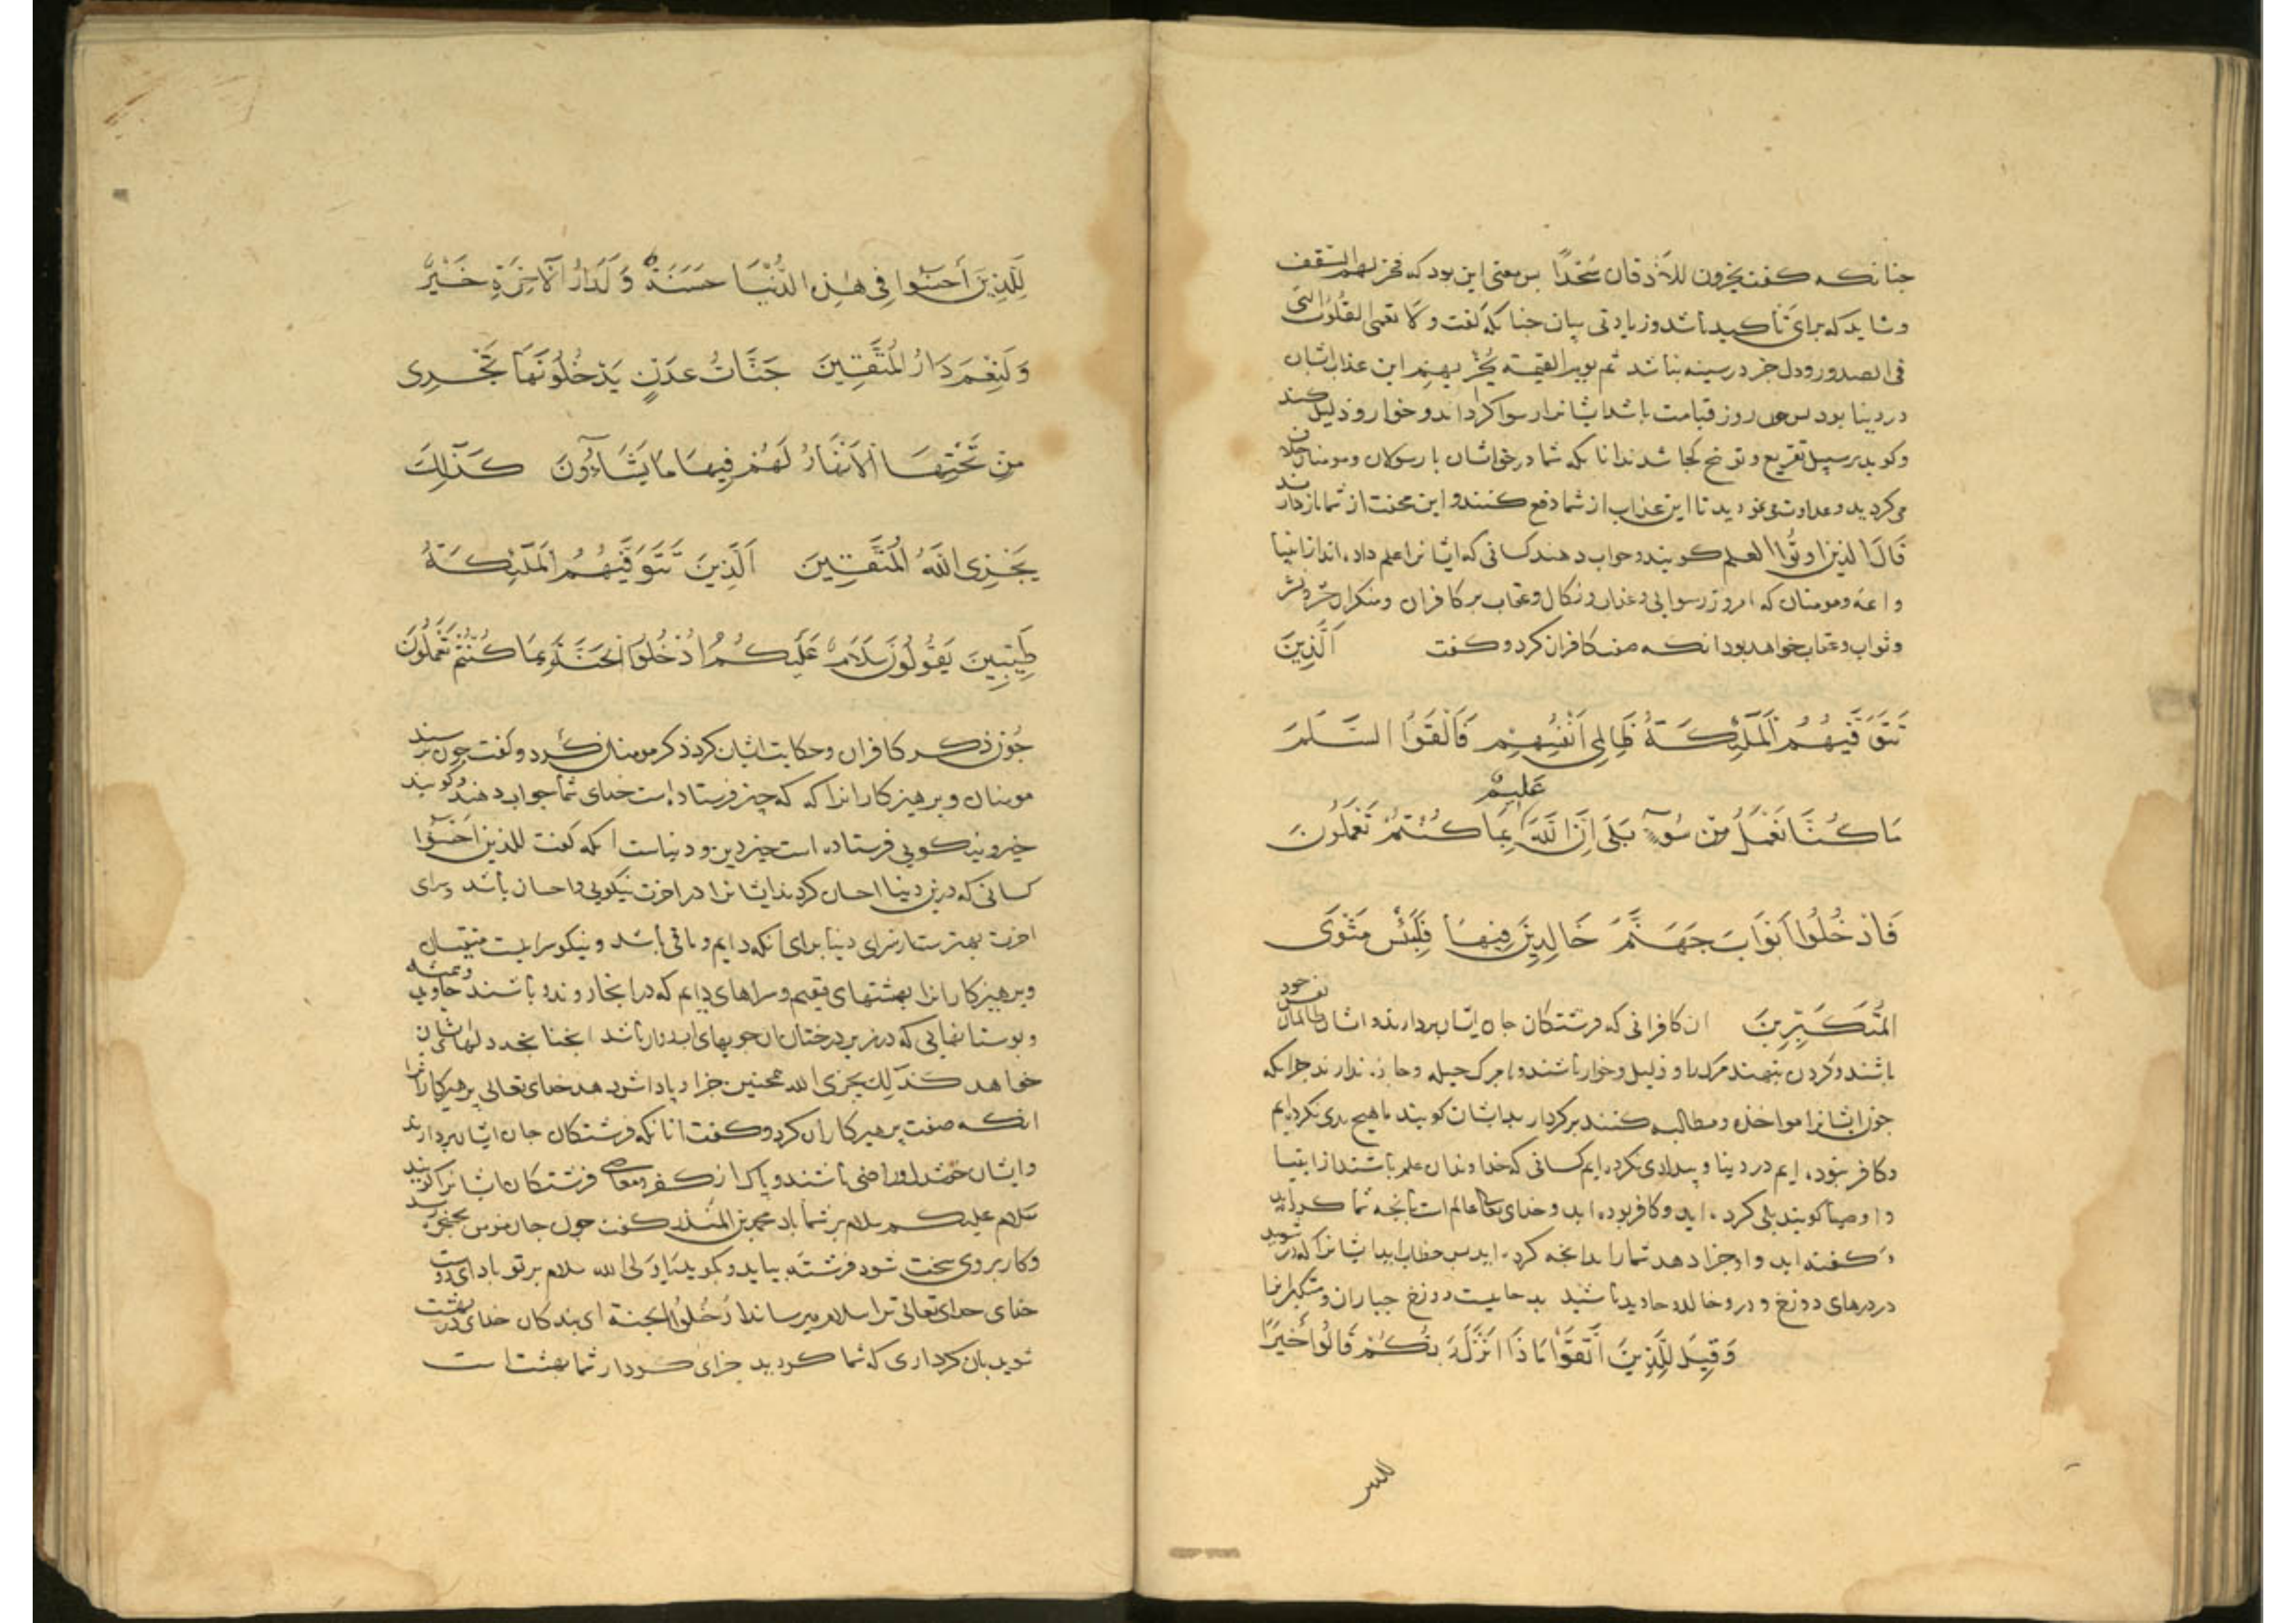 جنانکه کفت یخرون للاذقان سُجّدًا بس معنی این بود که فخر لهم السقف
و شاید که برای تأکید باشد و زیادتی بیان جنانکه کفت و لا تعمی القلوب التی
فی الصدور و دل جز در سینه نباشد ثم یوم القیمة یُخْزیهم این عذاب اشان
در دینا بود بس روز قیامت باشد ایشانرا رسوا کرداند و خوار و ذلیل کند
و کوید بر سبیل تقریع و توبیخ کجا شدند انانکه شما در حق اشان با رسولان و مومنان خلاف
می کردید و عداوت می نمودید تا این عذاب از شما دفع کنند و این محنت از شما باز دارند
قَالَ الذین اوتُوا العلم کویند و جواب دهند کسانی که ایشانرا علم داده اند از انبیا
و ائمه و مومنان که امروز رسوایی و عذاب و نکال و عقاب بر کافران و منکران حشر و نشر
و ثواب و عقاب خواهد بود انکه صفت کافران کرد و کفت اَلَّذِینَ
تَتَوَفَّیهُمُ اَلْمَلٰئِکَةُ ظَالِمِی اَنْفُسِهِمْ فَاَلْقَوُا السَّلَمَ
مَا کُنَّا نَعْمَلُ مِنْ سُوۤءٍ بَلَی اِنَّ اللّٰهَ عَلِیمٌ بِمَا کُنْتُمْ تَعْمَلُونَ
فَادْخُلُوا اَبْوَابَ جَهَنَّمَ خَالِدِینَ فِیهَا فَلَبِئْسَ مَثْوَی
المُتَکَبِّرِینَ ان کافرانی که فرشتکان جان ایشان بردارند و اشان ظالمان نفس خود
باشند و کردن بنهند مرک را و ذلیل و خوار باشند و با مرک حیله و جاره ندارند جرانکه
جون ایشانرا مواخذه و مطالبه کنند بر کردار بد ایشان کویند ما هیچ بدی نکرده ایم
و کافر نبوده ایم در دینا و بیدادی نکرده ایم کسانی که خداوندان علم باشند از انبیا
و اوصیا کویند بلی کرده اید و کافر بوده اید و خدای تعالی عالم است بانجه شما کرده اید
و کفته اید و او جزا دهد شما را بدانجه کرده اید بس خطاب اید ایشانرا که در شوید
در درهای دوزخ و در و خالد و جاوید باشید بد جاییست دوزخ جباران و متکبرانرا
وَقِیلَ لِلَّذِینَ اتَّقَوْا مَاذَا اَنْزَلَ رَبُّکُمْ قَالُوا خَیْرًا
للذین
لِلَّذِینَ أَحْسَنُوا فِی هٰذِهِ الدُّنْیَا حَسَنَةٌ وَ لَدَارُ الْآخِرَةِ خَیْرٌ
وَلَنِعْمَ دَارُ الْمُتَّقِینَ جَنَّاتُ عَدْنٍ یَدْخُلُونَهَا تَجْرِی
مِنْ تَحْتِهَا الْاَنْهَارُ لَهُمْ فِیهَا مَا یَشَآءُونَ کَذٰلِكَ
یَجْزِی اللّٰهُ الْمُتَّقِینَ اَلَّذِینَ تَتَوَفَّیهُمُ الْمَلٰئِکَةُ
طَیِّبِینَ یَقُولُونَ سَلَامٌ عَلَیْکُمُ ادْخُلُوا الْجَنَّةَ بِمَا کُنْتُمْ تَعْمَلُونَ
جُون ذکر کافران و حکایت اشان کرد ذکر مومنان کرد و کفت جون برسند
مومنان و برهیزکارانرا که که جیز فرستاده است خدای شما جواب دهند و کویند
خیر و نیکویی فرستاده است خیر دین و دنیا است انکه کفت للذین احسنوا
کسانی که درین دینا احسان کردند ایشانرا در اخرت نیکویی و احسان باشد و سرای
اخرت بهتر ست از سرای دینا برای انکه دایم و باقی باشد و نیکو سراییست متقیان
و برهیزکارانرا بهشتهای مقیم و سراهای دایم که در انجا روند و باشند جاوید و همیشه
و بوستانهایی که در زیر درختان ان جویهای اب روان باشد انجنا نجه دلهاشان
خواهد کَذٰلِكَ یجزی الله همجنین جزا و باداش دهد خدای تعالی برهیزکارانرا
انکه صفت برهیزکاران کرد و کفت انانکه فرشتکان جان ایشان بردارند
و ایشان خشنود و راضی باشند و باک از کفر و معاصی فرشتکان ایشانرا کویند
سَلام علیکم سلام بر شما باد محمد بن المنذر کفت جون جان مومن بحنجره رسد
و کار بر وی سخت شود فرشته بیاید و بکوید یَا وَلی الله سلام بر تو باد ای دوست
خدای خدای تعالی ترا سلام میرساند ادْخُلُوا الجنة ای بندکان خدای در بهشت
شوید بان کرداری که شما کردید جزای کردار شما بهشت است